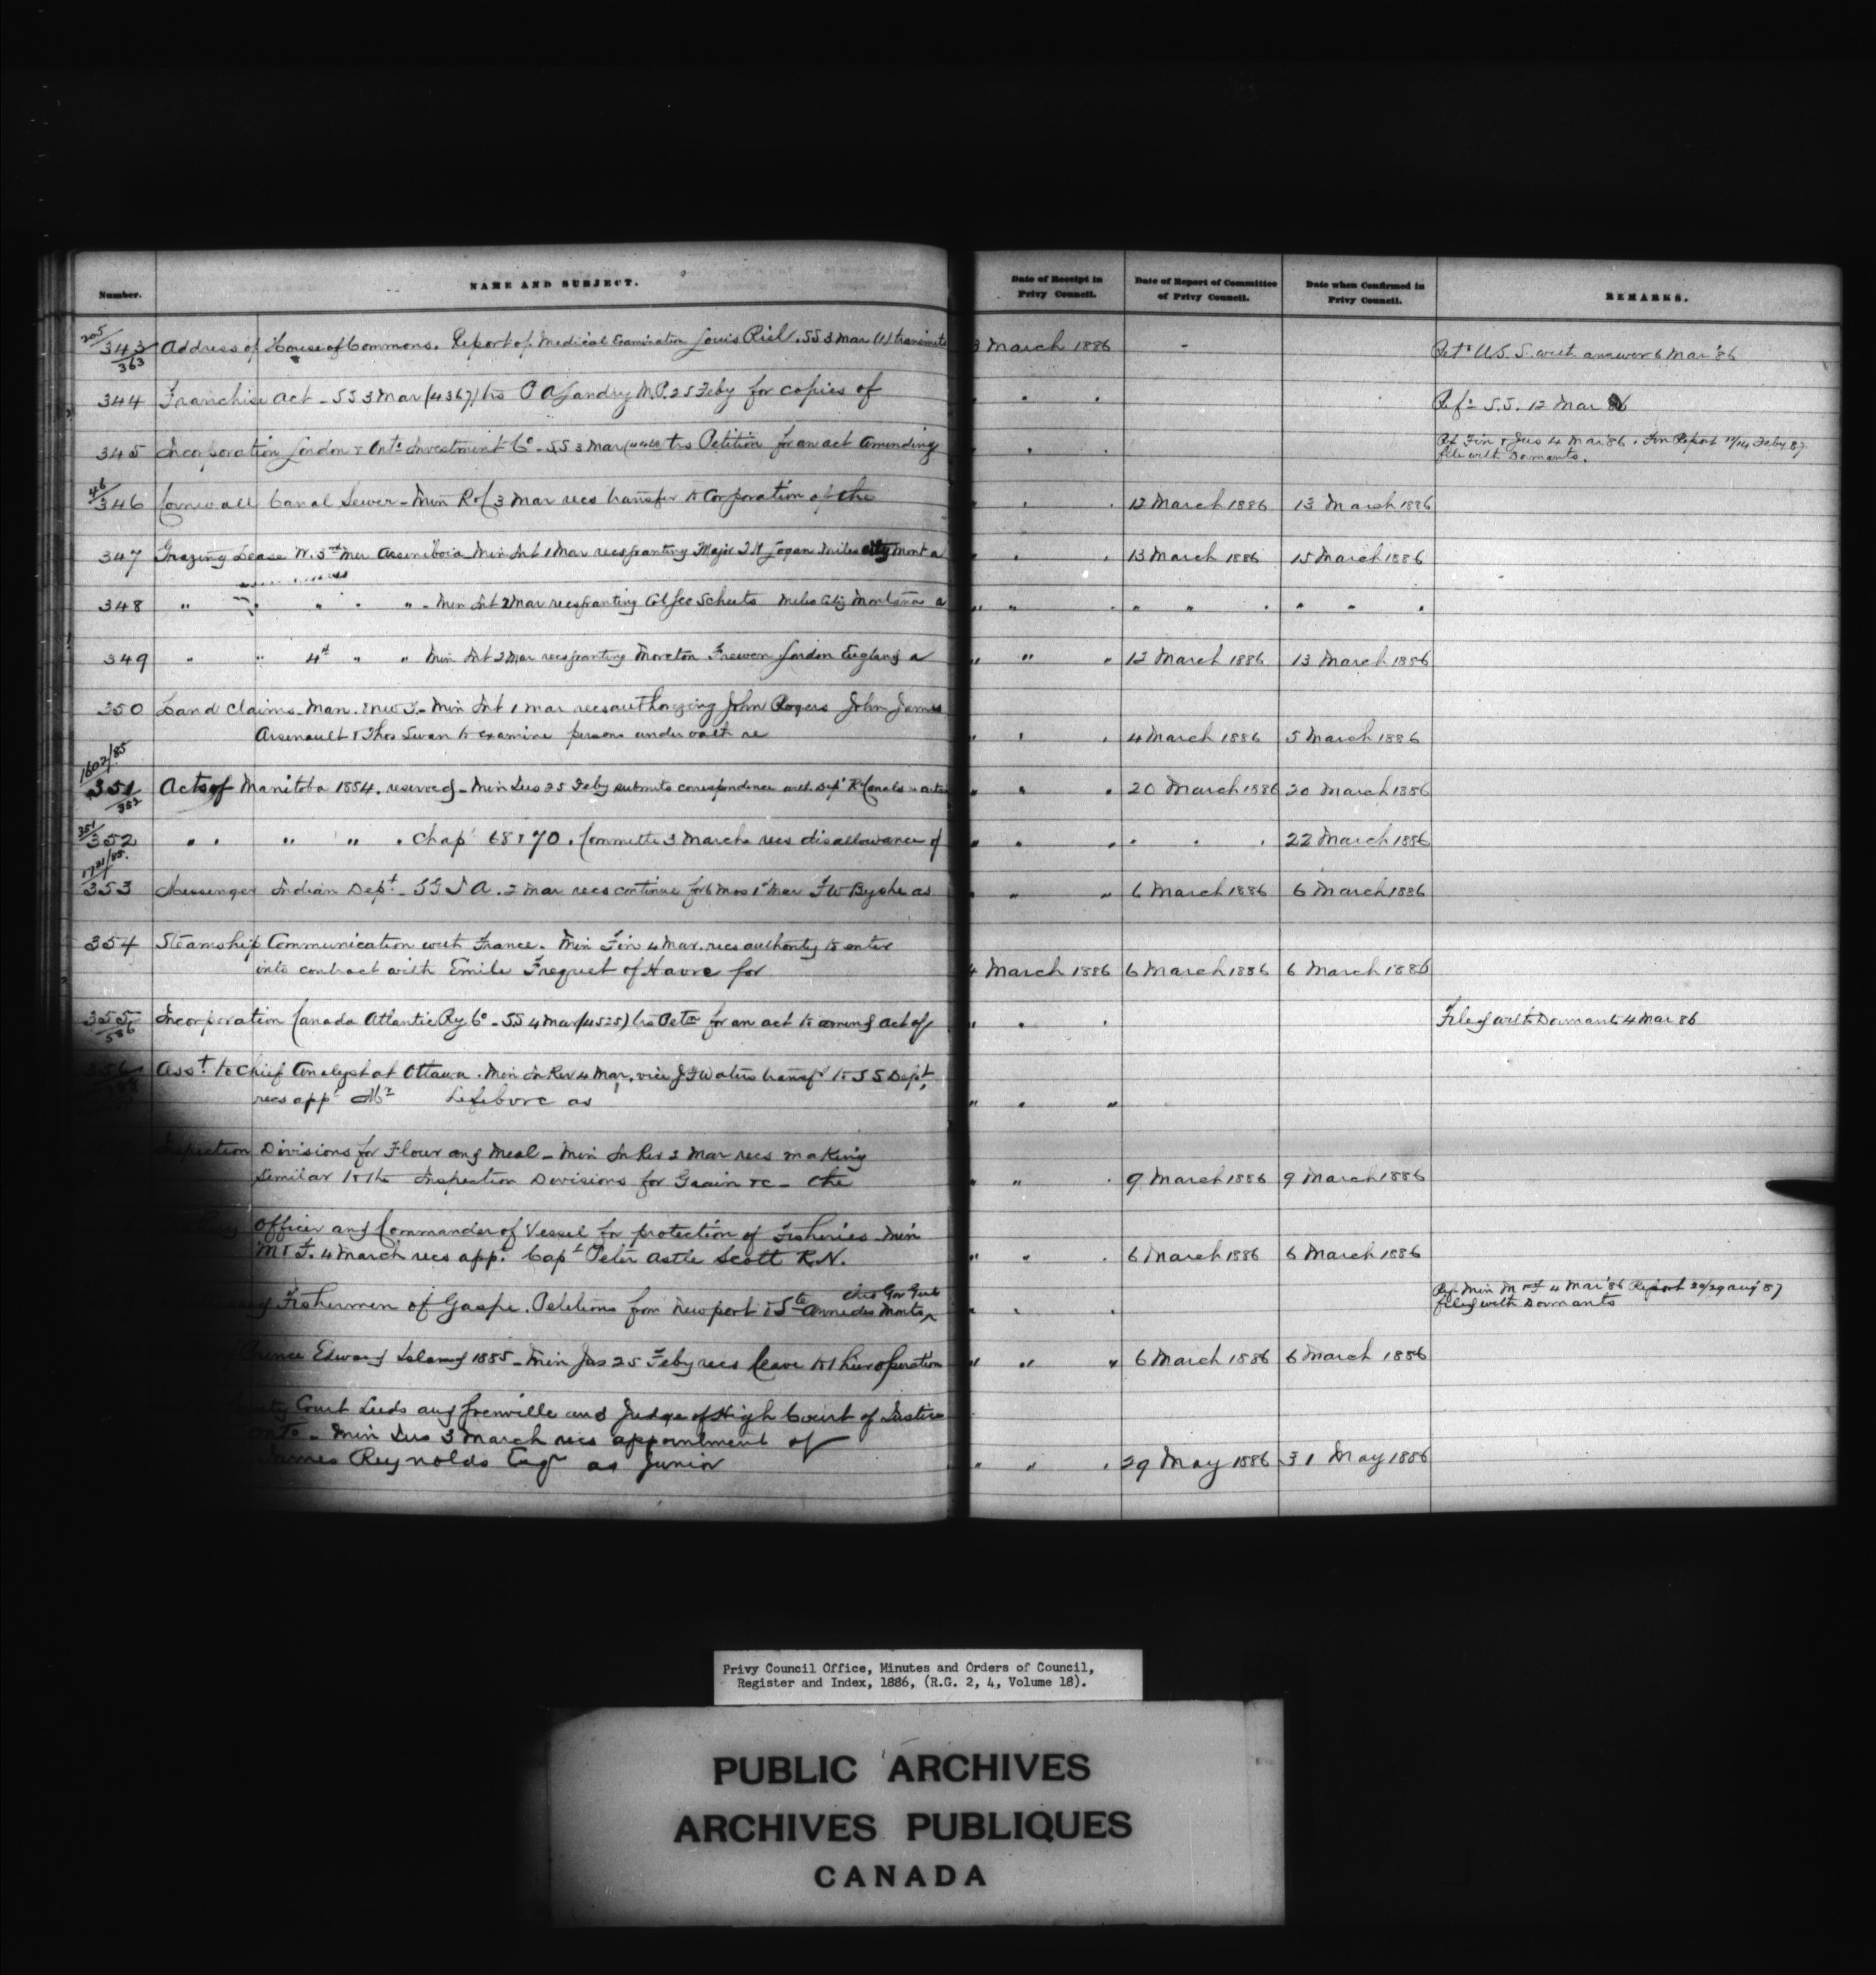 Number.
NAME AND SUBJECT.
Date of Receipt in Privy Council.
Date of Report of Committee of Privy Council.
Date when Confirmed in Privy Council.
REMARKS.
205/343/363 Address of House of Commons. Report of Medical Examination Louis Riel. SS 3 Mar (1) transmits 3 March 1886 Ret^d U.S.S. with answer 6 Mar '86
344 Franchise Act - SS 3 Mar (4367) trs P A Landry M.P. 25 Feby for copies of " " " Ref^d S.S. 12 Mar 86
345 Incorporation London & Ont^o Investment C^o - SS 3 Mar trs Petition for an act amending " " " Ref Fin & Jus 4 Mar 86. Fin Report 11/14 Feby 87
file with Dormants.
46/346 Cornwall Canal Sewer - Min R & C 3 Mar recs transfer to Corporation of the " " " 12 March 1886 13 March 1886
347 Grazing Lease W. 3^rd Mer Assiniboia - Min Int 1 Mar recs granting Major T H Logan Miles City Mont a " " " 13 March 1886 15 March 1886
348 " " " " " - Min Int 2 Mar recs granting Miles City Montana a " " " " " " " " "
349 " " 4^th " " Min Int 2 Mar recs granting Moreton Frewen London England a " " " 12 March 1886 13 March 1886
350 Land Claims - Man. & N W T. - Min Int 1 Mar recs authorizing John Rogers John James
Arsenault & Thos Swan to examine persons under oath re " " " 4 March 1886 5 March 1886
1602/85
351/352 Acts of Manitoba 1884. reserved - Min Jus 25 Feby submits correspondence with Dep^t R & Canals " " " 20 March 1886 20 March 1886
351/352 " " " " " Chap^s 68 & 70. Committee 3 March recs disallowance of " " " " " " 22 March 1886
1721/85.
353 Messenger Indian Dep^t - S G I A. 2 Mar recs continue for 6 mos 1^st Mar F W Byshe as " " " 6 March 1886 6 March 1886
354 Steamship Communication with France. Min Fin 4 Mar. recs authority to enter
into contract with Emile Frequet of Havre for 4 March 1886 6 March 1886 6 March 1886
355/586 Incorporation Canada Atlantic Ry C^o - SS 4 Mar (4525) trs Pet^n for an act to amend act of " " " Filed with Dormants 4 Mar 86
356 Ass^t to Chief Analyst at Ottawa. Min In Rev 4 Mar. vice J F Waters transf^d to S S Dep^t.
recs app^t M^r Lefebvre as " " "
Inspection Divisions for Flour and Meal - Min In Rev 2 Mar recs making
similar to the Inspection Divisions for Grain &c - the " " " 9 March 1886 9 March 1886
Officer and Commander of Vessel for protection of Fisheries - Min
M & F. 4 March recs app^t Cap^t Peter Astle Scott R.N. " " " 6 March 1886 6 March 1886
Fishermen of Gaspe. Petitions from Newport & S^te Anne des Monts " " " Ref Min M & F 4 Mar '86 Report 29/29 Aug 87
filed with Dormants
Prince Edward Island 1885 - Min Jus 25 Feby recs leave to their operation " " " 6 March 1886 6 March 1886
County Court Leeds and Grenville and Judge of High Court of Justice
Ont^o - Min Jus 3 March recs appointment of
James Reynolds Esq^r as Junior " " " 29 May 1886 31 May 1886
Privy Council Office, Minutes and Orders of Council,
Register and Index, 1886, (R.G. 2, 4, Volume 18).
PUBLIC ARCHIVES
ARCHIVES PUBLIQUES
CANADA